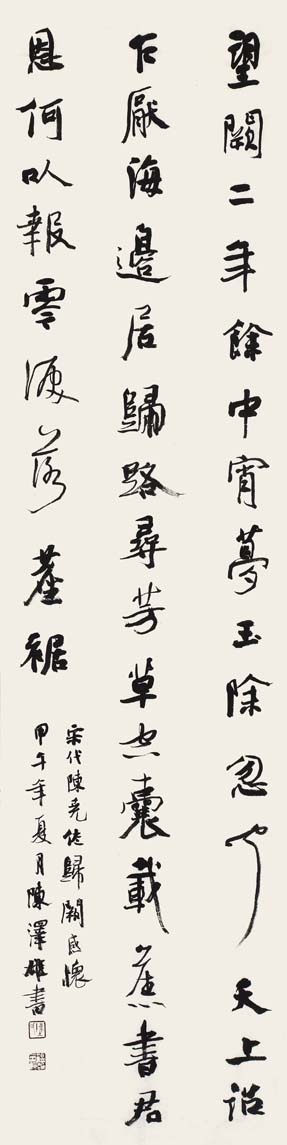 望闕二年餘中宵夢玉除忽聞天上詔
乍厭海邊居歸路尋芳草空囊載舊書君
恩何以報零淚落塵裾
宋代陳堯佐歸闕感懷
甲午年夏月陳澤雄書